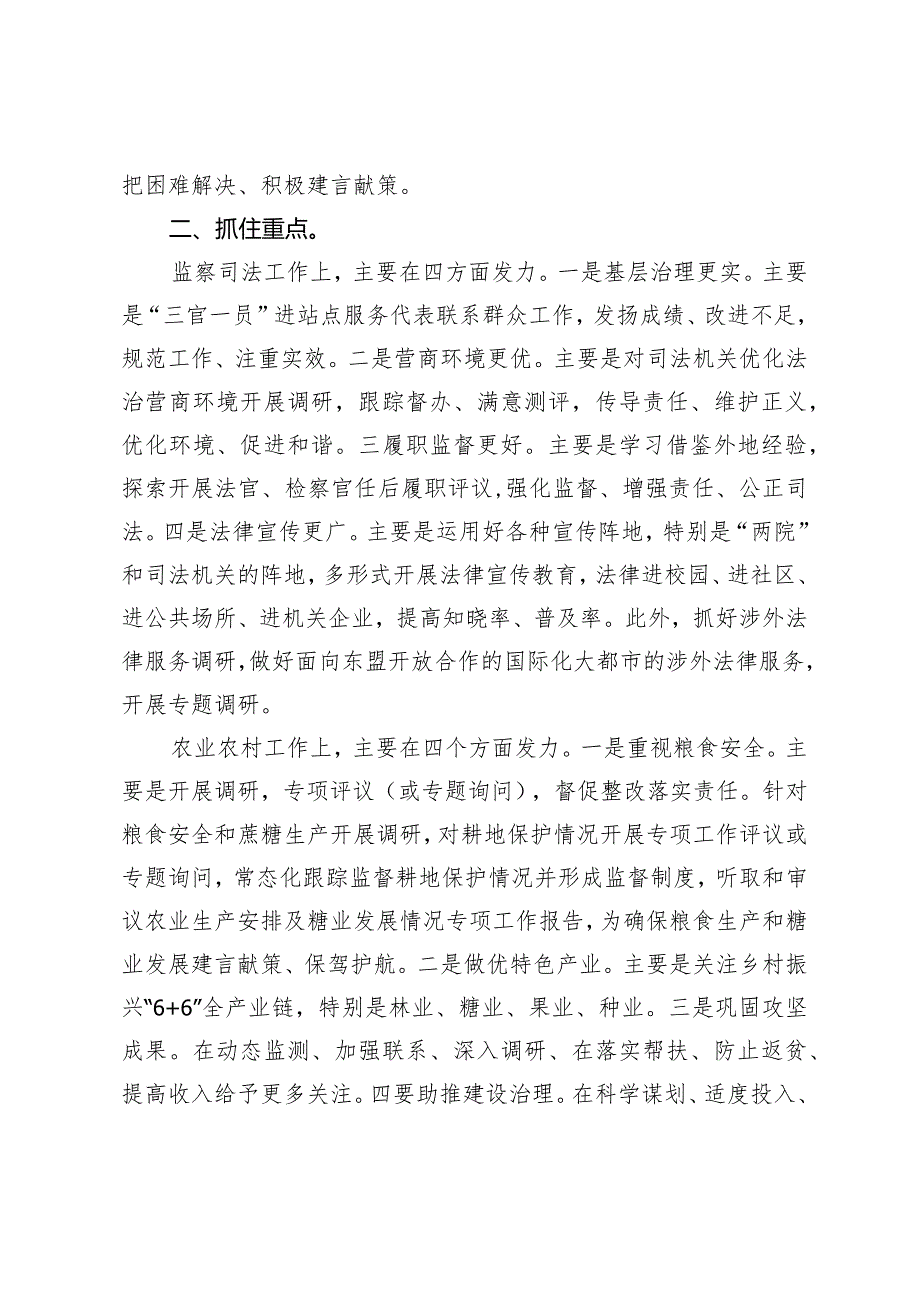 把困难解决、积极建言献策。
二、抓住重点。
监察司法工作上，主要在四方面发力。一是基层治理更实。主要
是“三官一员”进站点服务代表联系群众工作，发扬成绩、改进不足，
规范工作、注重实效。二是营商环境更优。主要是对司法机关优化法
治营商环境开展调研，跟踪督办、满意测评，传导责任、维护正义，
优化环境、促进和谐。三履职监督更好。主要是学习借鉴外地经验，
探索开展法官、检察官任后履职评议,强化监督、增强责任、公正司
法。四是法律宣传更广。主要是运用好各种宣传阵地，特别是“两院”
和司法机关的阵地，多形式开展法律宣传教育，法律进校园、进社区、
进公共场所、进机关企业，提高知晓率、普及率。此外，抓好涉外法
律服务调研，做好面向东盟开放合作的国际化大都市的涉外法律服务，
开展专题调研。
农业农村工作上，主要在四个方面发力。一是重视粮食安全。主
要是开展调研，专项评议（或专题询问），督促整改落实责任。针对
粮食安全和蔗糖生产开展调研，对耕地保护情况开展专项工作评议或
专题询问，常态化跟踪监督耕地保护情况并形成监督制度，听取和审
议农业生产安排及糖业发展情况专项工作报告，为确保粮食生产和糖
业发展建言献策、保驾护航。二是做优特色产业。主要是关注乡村振
兴“6+6”全产业链，特别是林业、糖业、果业、种业。三是巩固攻坚
成果。在动态监测、加强联系、深入调研、在落实帮扶、防止返贫、
提高收入给予更多关注。四要助推建设治理。在科学谋划、适度投入、